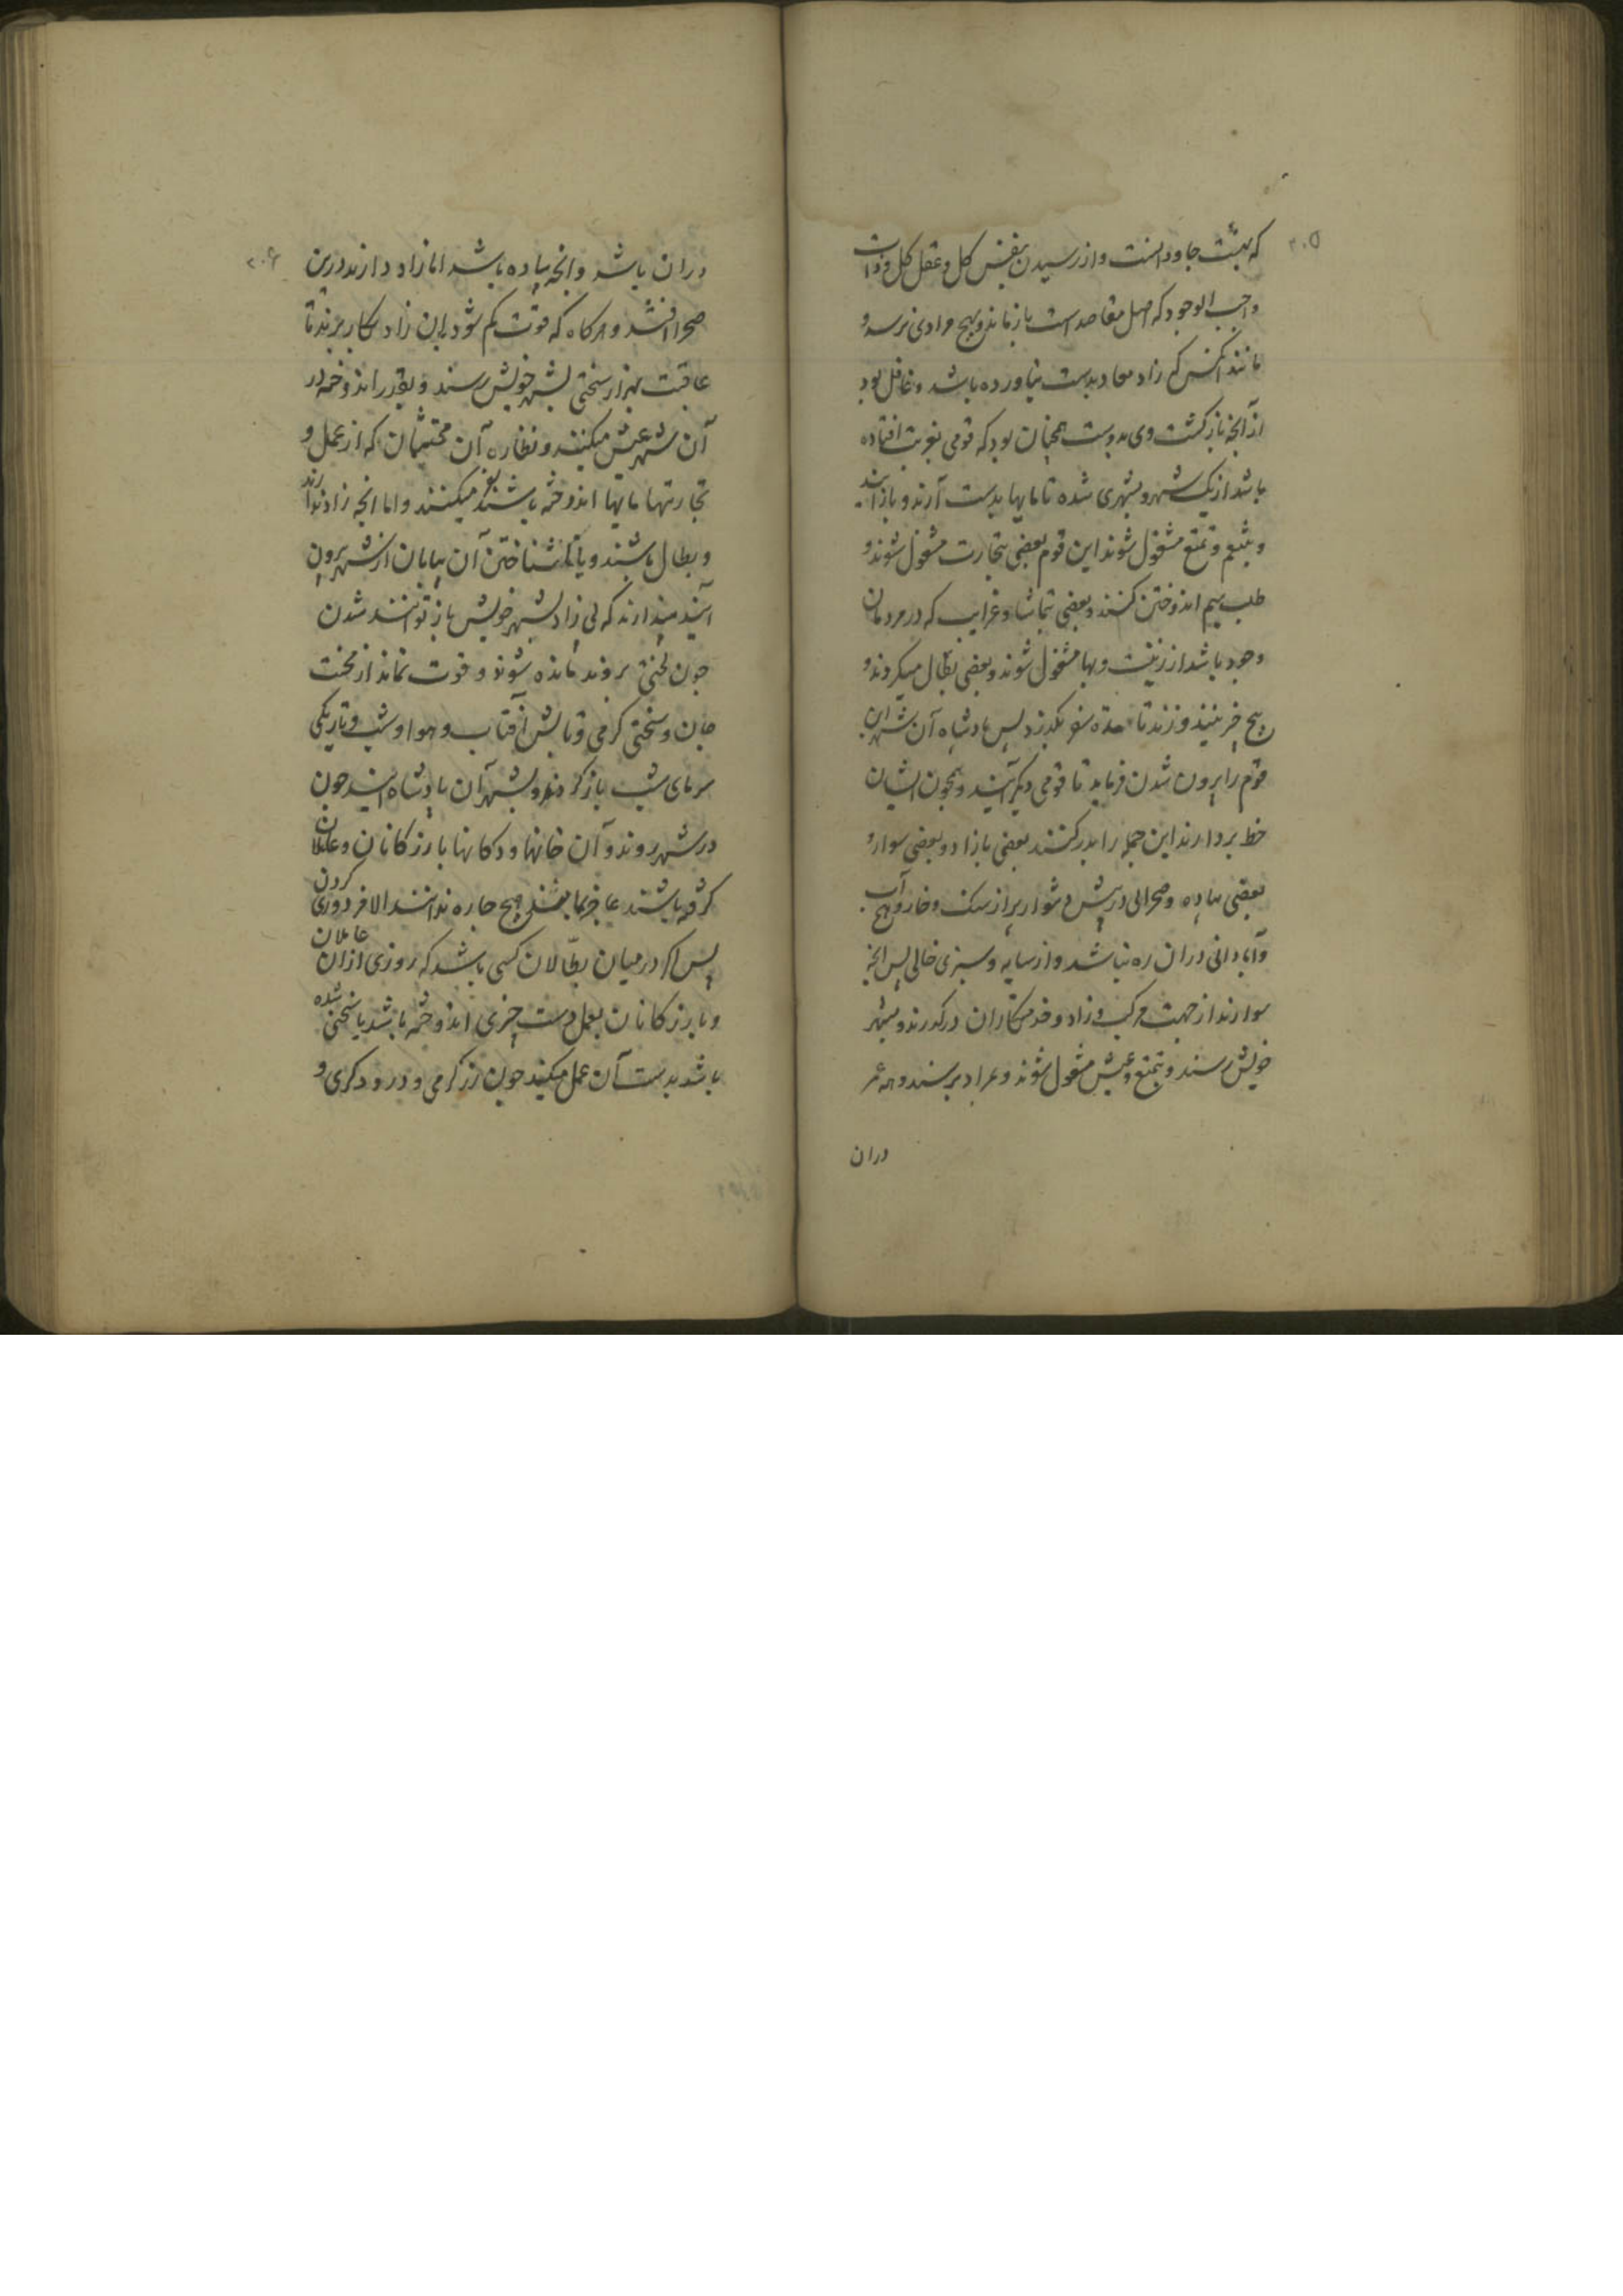 ۲۰۵
که بهشت جاودانست و از رسیدن بنفس کل و عقل کل و ذات
واجب الوجود که اصل مقاصد است باز ماند و بهیچ مرادی نرسد و
مانند آنکس که زاد معاد بدست نیاورده باشد و غافل بود
از آنچه بازگشت وی بدوست همچنان بود که قومی بغربت افتاده
باشد از یک شهر و بشهری شده تا مایها بدست آرند و باز آیند
و بتنعم و تمتع مشغول شوند این قوم بعضی بتجارت مشغول شوند و
طلب سیم اندوختن کنند و بعضی بتماشا و غرایب که در مردمان
وجود باشد از زینت و بها مشغول شوند و بعضی بطال میگردند و
هیچ خر نبیند و زند تا مدة سفر بگذرد پس پادشاه آن شهر این
قوم را بیرون شدن فرماید تا قومی دیگر آیند و همچون ایشان
خط بردارند این جمله را بدر کنند بعضی بازاد و بعضی سوار و
بعضی پیاده و صحرائی در پیش دشوار پر از سنک و خار و هیچ آب
و آبادانی دران ره نباشد و از سایه و سبزی خالی پس انچه
سوارند از جهت مرکب و زاد و خدمتکاران درگذرند و بشهر
خویش رسند و بتمتع و عیش مشغول شوند و بمراد برسند و همه عمر
دران
۲۰۶
دران باشد و انچه پیاده باشد اما زاد دارند درین
صحرا افتند و هرگاه که قوت کم شود بدان زاد بکار برند تا
عاقبت بهزار سختی بشهر خویش رسند و بقدر اندوخته در
آن شهر عیش میکنند و نظاره آن محتشمان که از عمل و
تجارتها مایها اندوخته باشند نیز میکنند و اما انچه زاد ندارند
و بطال باشند و با ناشناختن آن بیابان از شهر بیرون
آیند پندارند که بی زاد بشهر خویش باز توانند شدن
چون لختی بروند مانده شوند و قوت نماند از محنت
جان و سختی گرمی و تابش آفتاب و هوا و شب و تاریکی
سرمای شب باز گردند و بشهر آن پادشاه آیند چون
در شهر روند و آن خانها و دکانها بازرگانان و عاملان
گرفته باشند عاجز بمانند هیچ چاره ندانند الا مزدوری کردن
پس اگر در میان بطّالان کسی باشد که روزی از آن عاملان
و بازرگانان بعمل دست چیزی اندوخته باشد یا سختی شده
باشد بدست آن عمل میکند چون زرگرمی و درودگری و